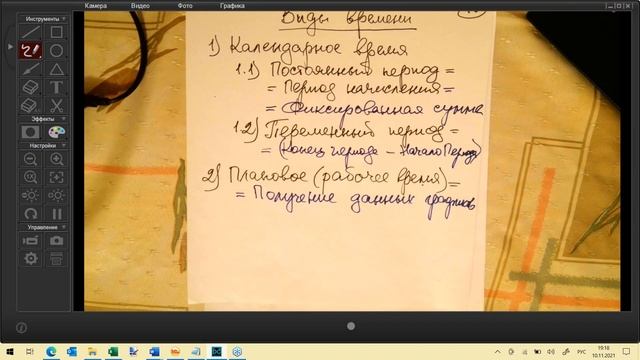 Камера Видео Фото Графика
Инструменты
Виды времени
1) Календарное время
1.1) Постоянный период =
= Период начисления =
= Фиксированная сумма
1.2) Переменный период =
= (Конец периода – Начало Период)
2) Плановое (рабочее время) =
= Получение данных графиков
Эффекты
Настройки
Управление
РУС
19:18
10.11.2021